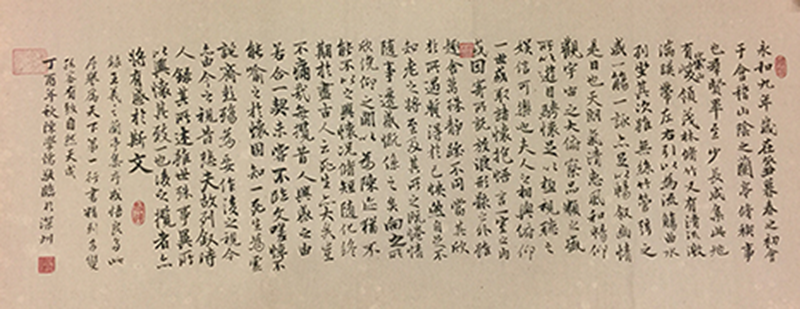 永和九年歲在癸丑暮春之初會
于會稽山陰之蘭亭脩禊事
也群賢畢至少長咸集此地
有崇山峻領茂林脩竹又有清流激
湍暎帶左右引以為流觴曲水
列坐其次雖無絲竹管弦之
盛一觴一詠亦足以暢敘幽情
是日也天朗氣清惠風和暢仰
觀宇宙之大俯察品類之盛
所以遊目騁懷足以極視聽之
娛信可樂也夫人之相與俯仰
一世或取諸懷抱悟言一室之內
或因寄所託放浪形骸之外雖
趣舍萬殊靜躁不同當其欣
於所遇暫得於己快然自足不
知老之將至及其所之既惓情
隨事遷感慨係之矣向之所
欣俛仰之閒以為陳迹猶不
能不以之興懷況脩短隨化終
期於盡古人云死生亦大矣豈
不痛哉每攬昔人興感之由
若合一契未嘗不臨文嗟悼不
能喻之於懷固知一死生為虛
誕齊彭殤為妄作後之視今
亦由今之視昔悲夫故列敘時
人錄其所述雖世殊事異所
以興懷其致一也後之攬者亦
將有感於斯文
錄王羲之蘭亭集序 此
序譽為天下第一行書 變
有致自然天成
丁酉年秋陳學 臨於深圳